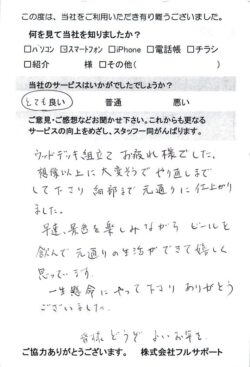 この度は、当社をご利用いただき有り難うございました。
何を見て当社を知りましたか?
□パソコン ☑スマートフォン □iPhone □電話帳 □チラシ
□紹介 様 □その他( )
当社のサービスはいかがでしたでしょうか?
とても良い 普通 悪い
ご意見・ご感想などお聞かせ下さい。これからも更なる
サービスの向上をめざし、スタッフ一同がんばります。
ウッドデッキ組立て お疲れ様でした。
想像以上に大変そうで やり直しまで
して下さり 細部まで 元通りに仕上がり
ました。
早速、景色を楽しみながら ビールを
飲んで元通りの生活ができて嬉しく
思っています。
一生懸命に やって下さり ありがとう
ございました。
皆様 どうぞ よいお年を
ご協力ありがとうございます。 株式会社フルサポート